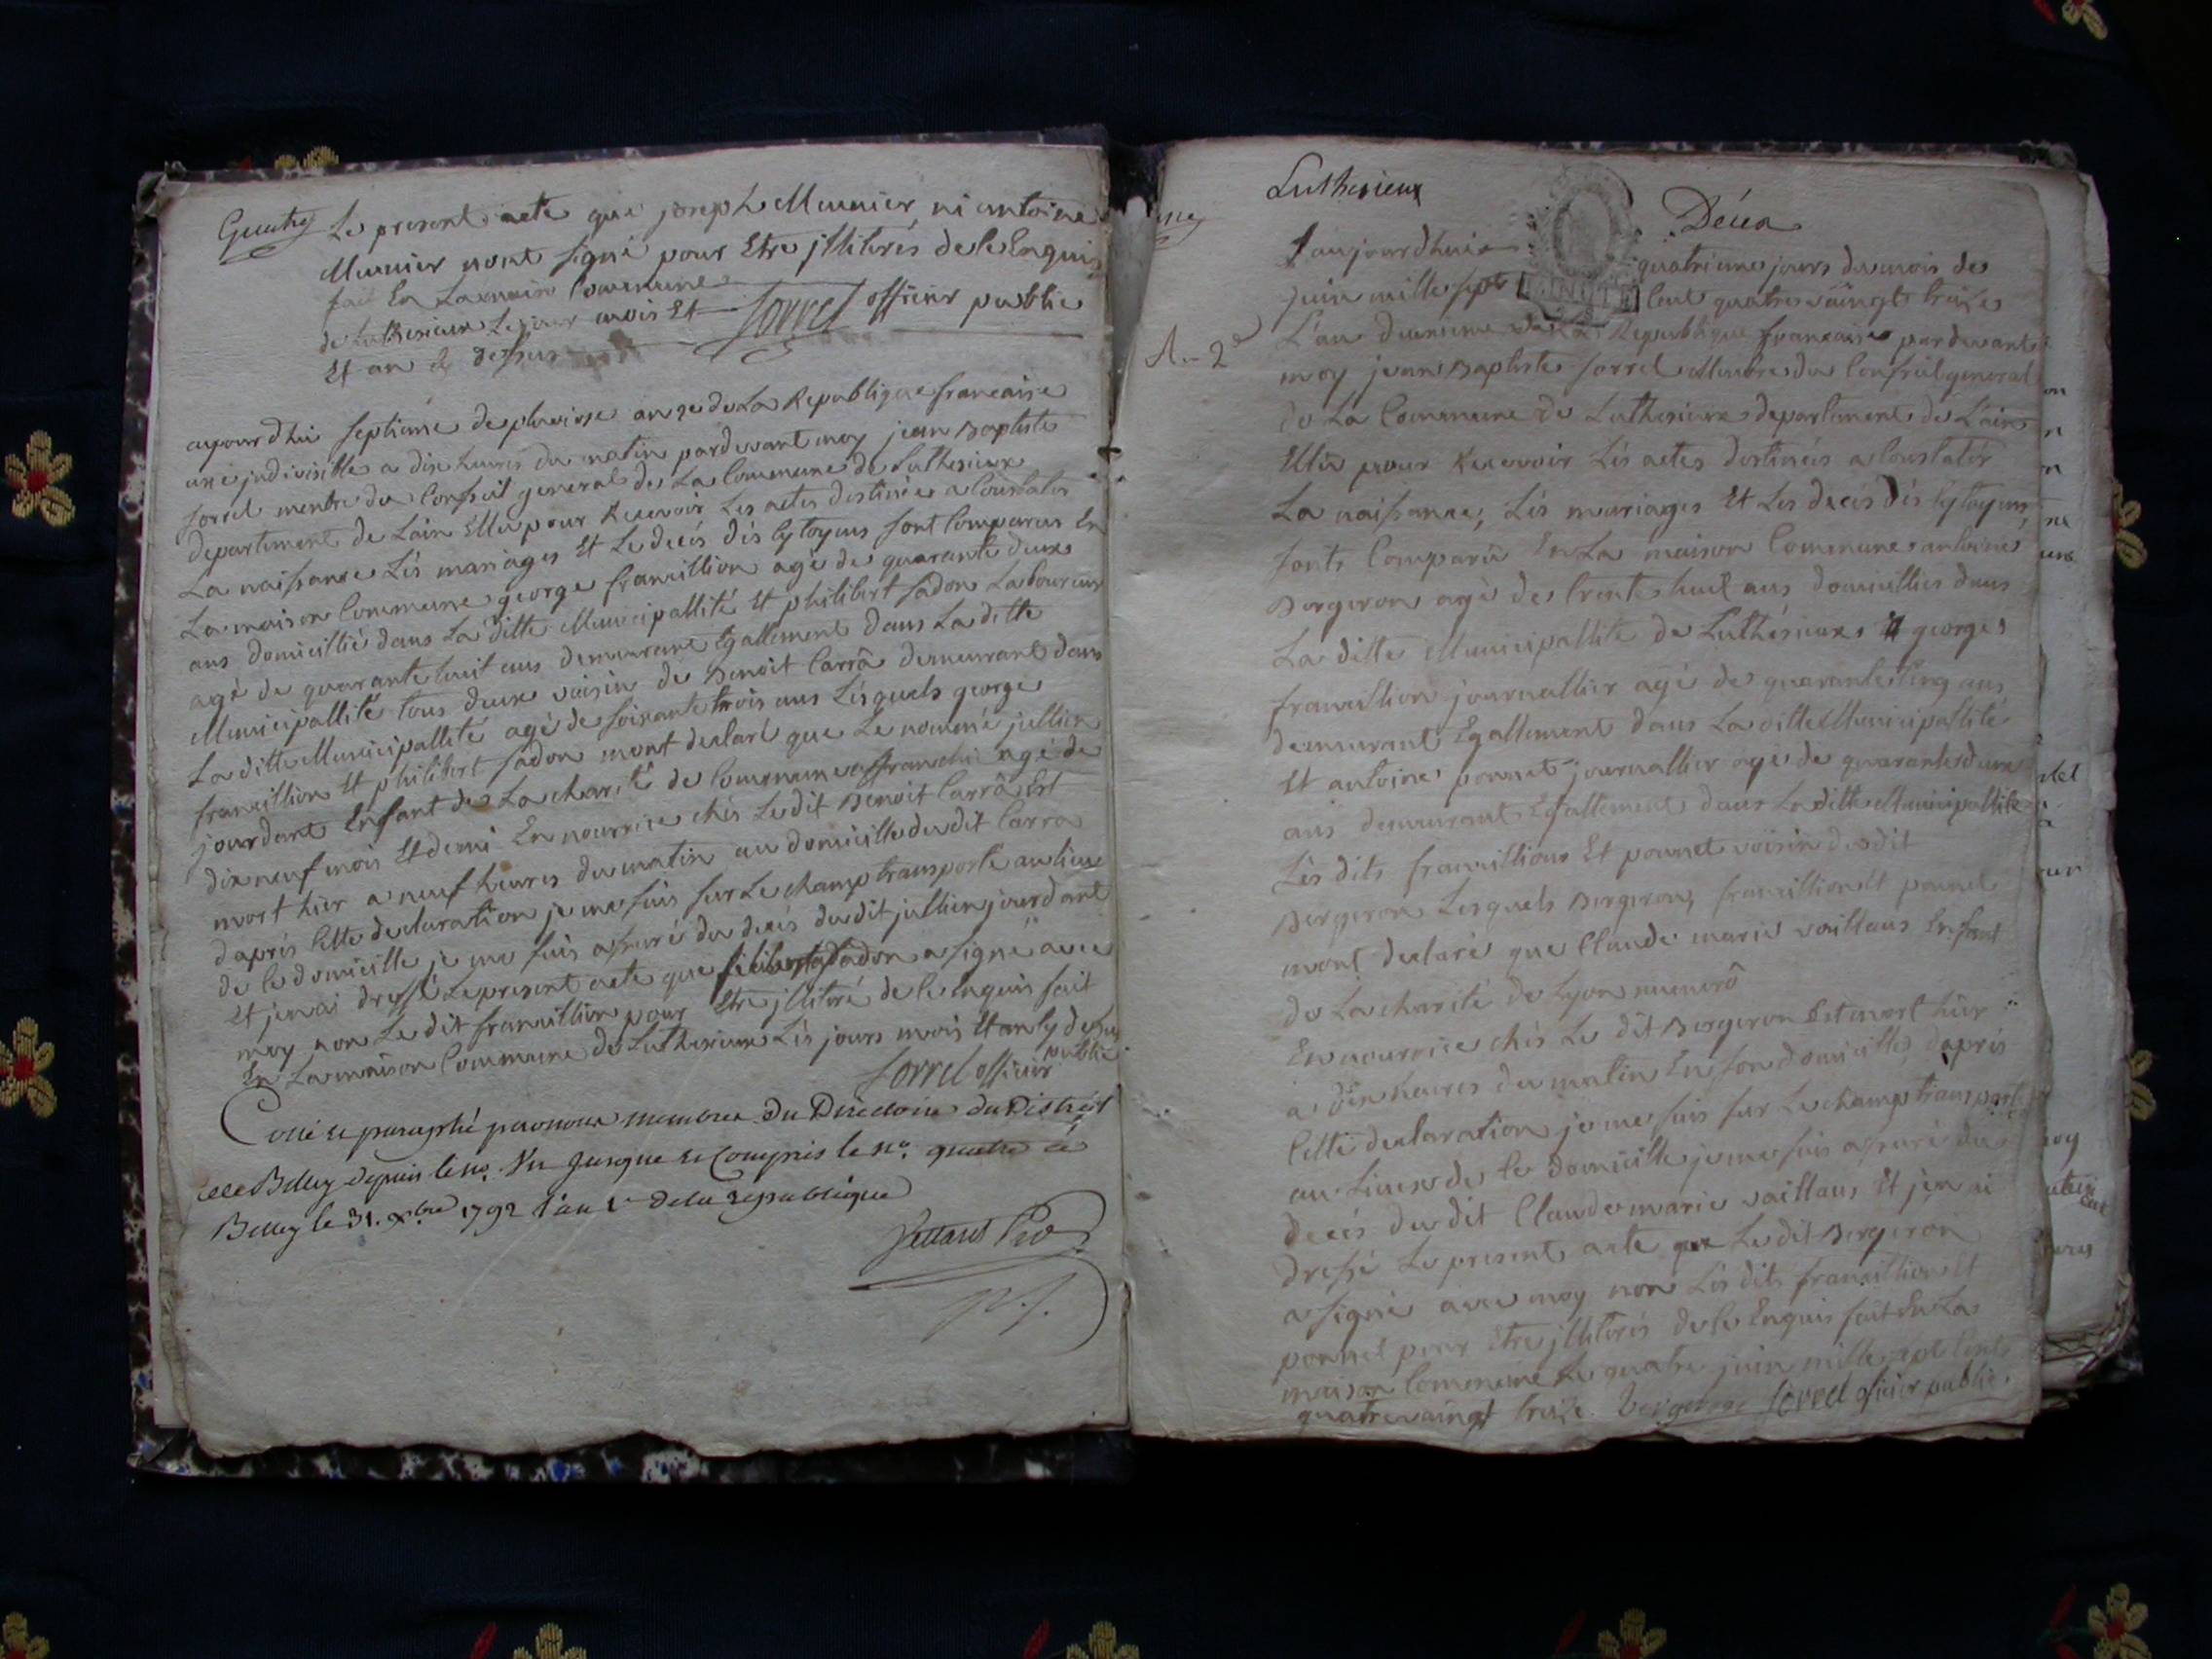 Quatre
Le present acte que joseph Meunier ni antoine
Meunier nont signé pour Etre jlliterés de le Enquis
fait En La maison Commune
de Luthesieux Le jour mois Et Sorrel officier public
Et an de dessus
aujourdhui septiéme de pluviose an 2e de La Republique francaise
une jndivisible a dix heures du matin pardevant moy jean Baptiste
sorrel menbre du Conseil general de La Commune de Luthesieux
departement de Lain Ellu pour Recevoir Les actes destinés a Constater
La naissance Lés mariages Et Le decés dés Cytoyens sont Comparus En
La maison Commune george francillion agé de quarante deux
ans domicillié dans La ditte Municipallité Et philibert sadon Laboureur
agé de quarante huit ans demeurant Egallement dans La ditte
Municipallité tous deux voisin de Benoit Carrâ demeurant dans
La ditte Municipallité agé de soixante trois ans Lésquels george
francillion Et philibert sadon mont declaré que Le nommé jullien
jourdant Enfant de La charité de Commune affranchi agé de
dix neuf mois Et demi En nourrice chés Le dit Benoit Carrâ Est
mort hier a neuf heures du matin au domicille du dit Carra
daprés Cette declaration je me suis sur Le champ transporté au lieu
de le domicille je me suis assuré du decés du dit jullien jourdant
Et jen ai dressé Le present acte que sadon a signé avec
moy non Le dit francillion pour Etre jlliteré de le Enquis fait
En La maison Commune de Luthesieux Lés jours mois Et an cy dessus
sorrel officier public
Cotté et paraphé par nous membre du Directoire du District
de Belley depuis le no. Un jusque et Compris le no. quatre a
Belley le 31. xbre 1792 l'an 1er de la republique
Luthesieux
Décés
aujourdhuie quatrieme jours du mois de
juin mille sept MINUTE Cent quatre vaingt treize
An 2e
L'an deuxieme de La Republique francaise pardevant
moy jean Baptiste sorrel Menbre du Conseil general
de La Commune de Luthesieux departement de L'ain
Ellu pour Recevoir Lés actes destinés a Constater
La naissance, Lés mariages Et Les decés dés Cytoyens,
sont Comparû En La maison Commune antoine
Bergeron agé de trente huit ans domicillié dans
La ditte Municipallité de Luthésieux Et george
francillion journallier agé de quarante Cinq ans
demeurant Egallement dans La ditte Municipallité
Et antoine ponnet journallier agé de quarante deux
ans demeurant Egallement dans La ditte Municipallité
Lés dits francillions Et ponnet voisin du dit
Bergeron Lesquels Bergeron, francillion Et ponnet
mont declaré que Claude marie vaillans Enfant
de La charité de Lyon numerô
En nourrice chés Le dit Bergeron Est mort hier
a dix heures du matin En son domicille, daprés
Cette declaration je me suis sur Le champ transporté
au Lieux de le domicille je me suis assuré du
decés du dit Claude marie vaillans Et jen ai
dressé Le present acte que Le dit Bergeron
a signé avec moy non Lés dits francillion Et
ponnet pour Etre jlliterés de le Enquis fait En La
maison Commune Le quatre juin mille sept Cents
quatre vaingt treize. Bergeron sorrel oficier public.